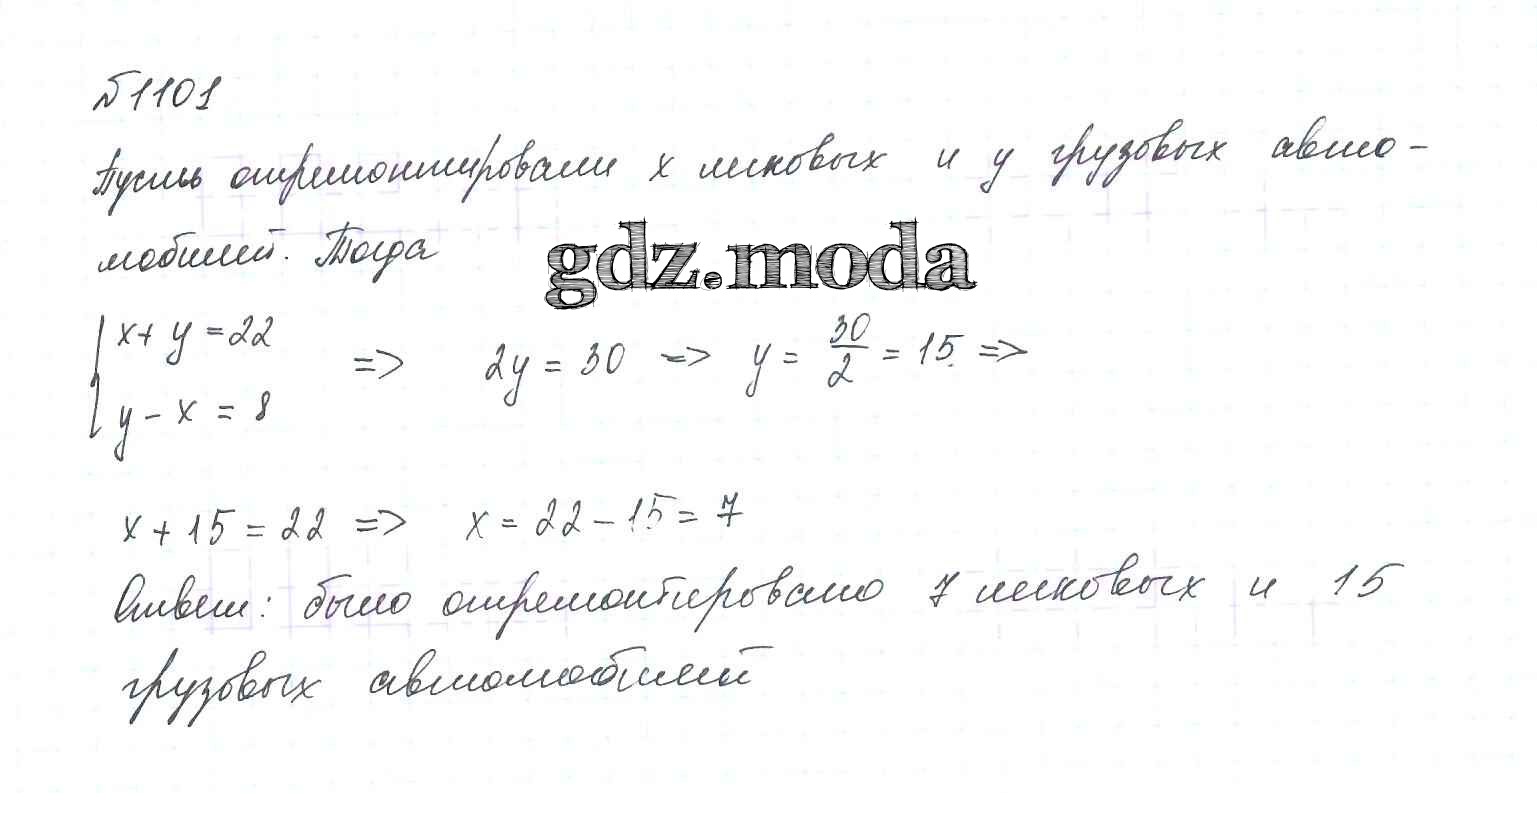 №1101
Пусть отремонтировали x легковых и y грузовых авто-
мобилей. Тогда
gdz.moda
x + y = 22
y - x = 8
=> 2y = 30 => y = 30/2 = 15 =>
x + 15 = 22 => x = 22 - 15 = 7
Ответ: было отремонтировано 7 легковых и 15
грузовых автомобилей